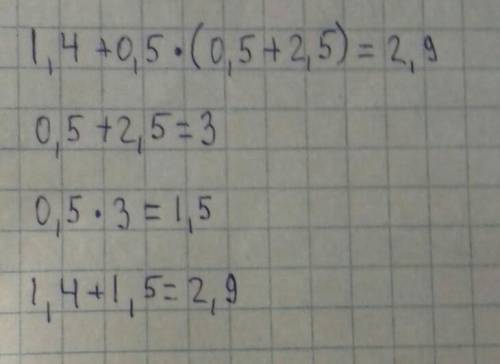 1,4+0,5·(0,5+2,5)=2,9
0,5+2,5=3
0,5·3=1,5
1,4+1,5=2,9